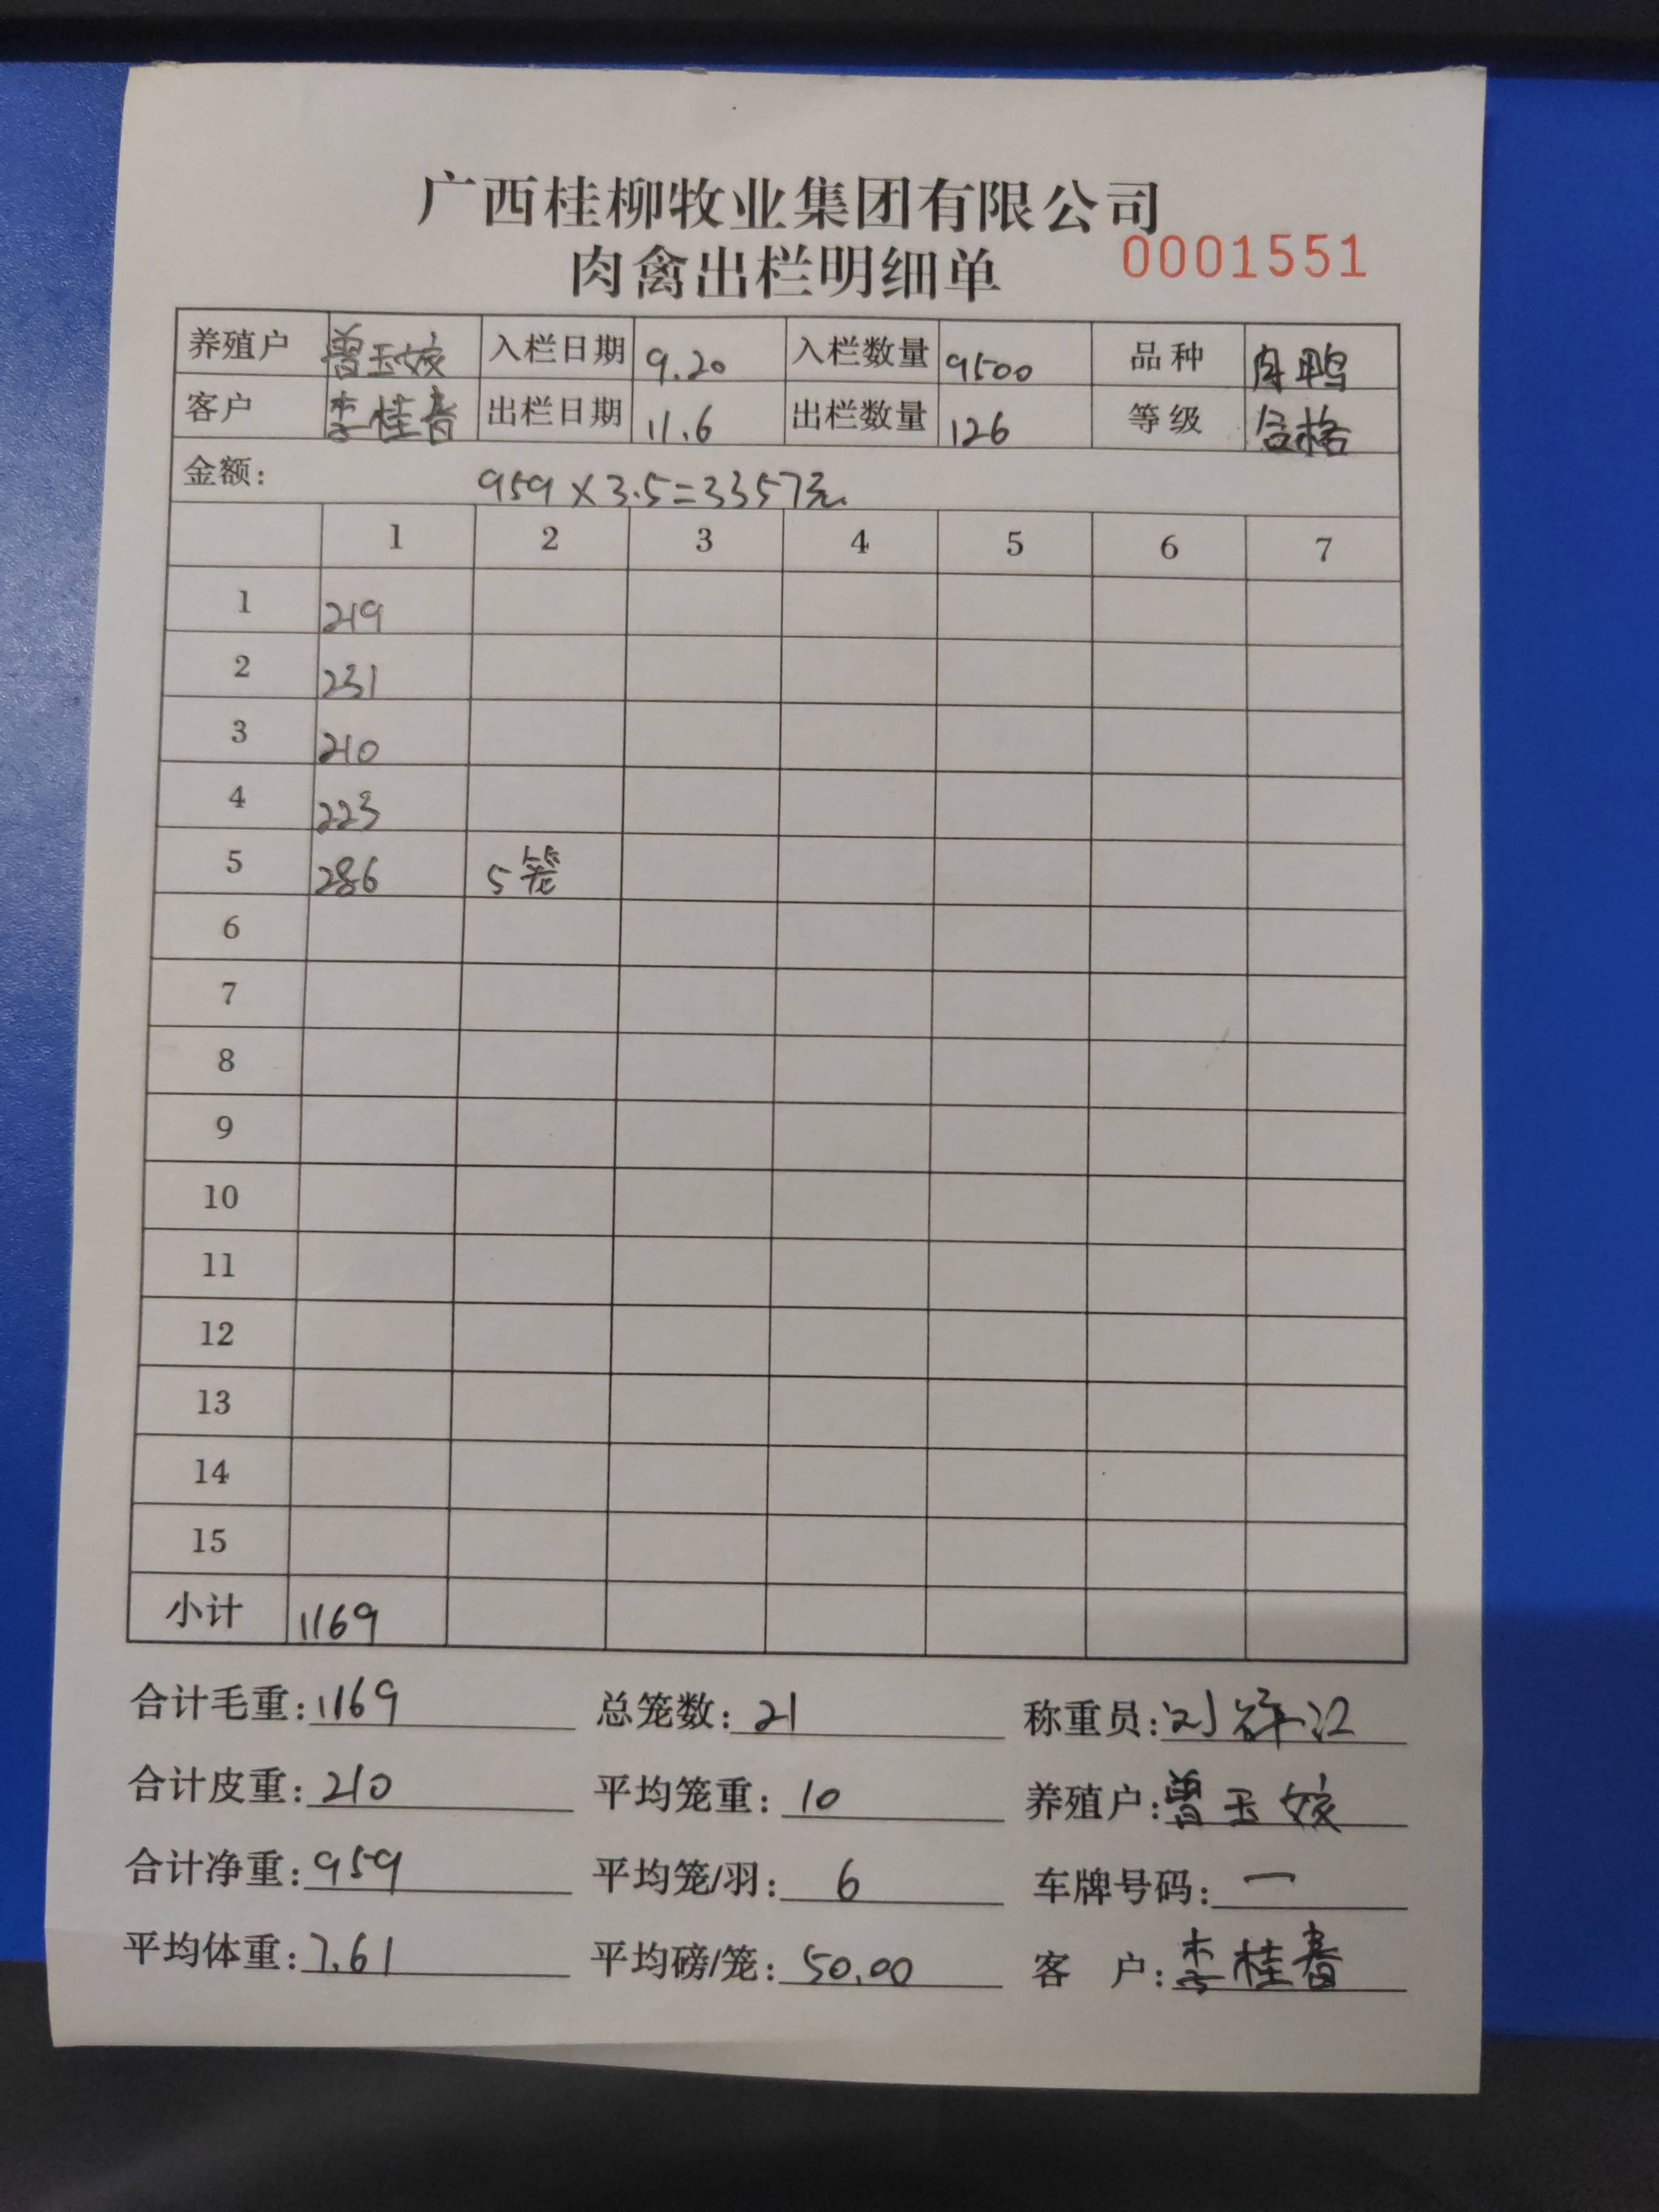 广西桂柳牧业集团有限公司
肉禽出栏明细单 0001551
养殖户 曾玉姣 入栏日期 9.20 入栏数量 9500 品种 肉鸭
客户 李桂春 出栏日期 11.6 出栏数量 126 等级 合格
金额: 959×3.5=3357元
1 2 3 4 5 6 7
1 219
2 231
3 210
4 223
5 286 5笼
6
7
8
9
10
11
12
13
14
15
小计 1169
合计毛重: 1169 总笼数: 21 称重员: 刘祥江
合计皮重: 210 平均笼重: 10 养殖户: 曾玉姣
合计净重: 959 平均笼/羽: 6 车牌号码: 一
平均体重: 7.61 平均磅/笼: 50.00 客 户: 李桂春